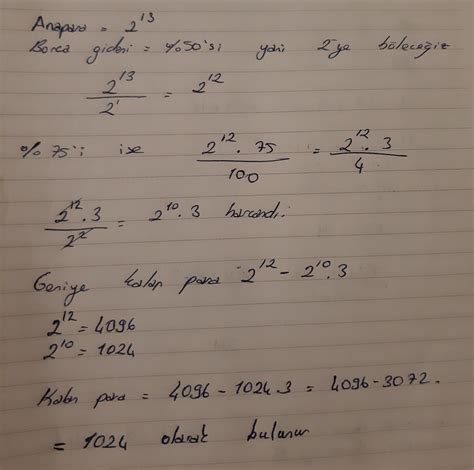 Anapara = 2¹³
Borca gideni = %50'si yani 2'ye böleceğiz
2¹³/2¹ = 2¹²
%75'i ise 2¹².75/100 = 2¹².3/4
2¹².3/2² = 2¹⁰.3 harcandı.
Geriye kalan para 2¹² - 2¹⁰.3
2¹² = 4096
2¹⁰ = 1024
Kalan para = 4096 - 1024.3 = 4096 - 3072.
= 1024 olarak bulunur